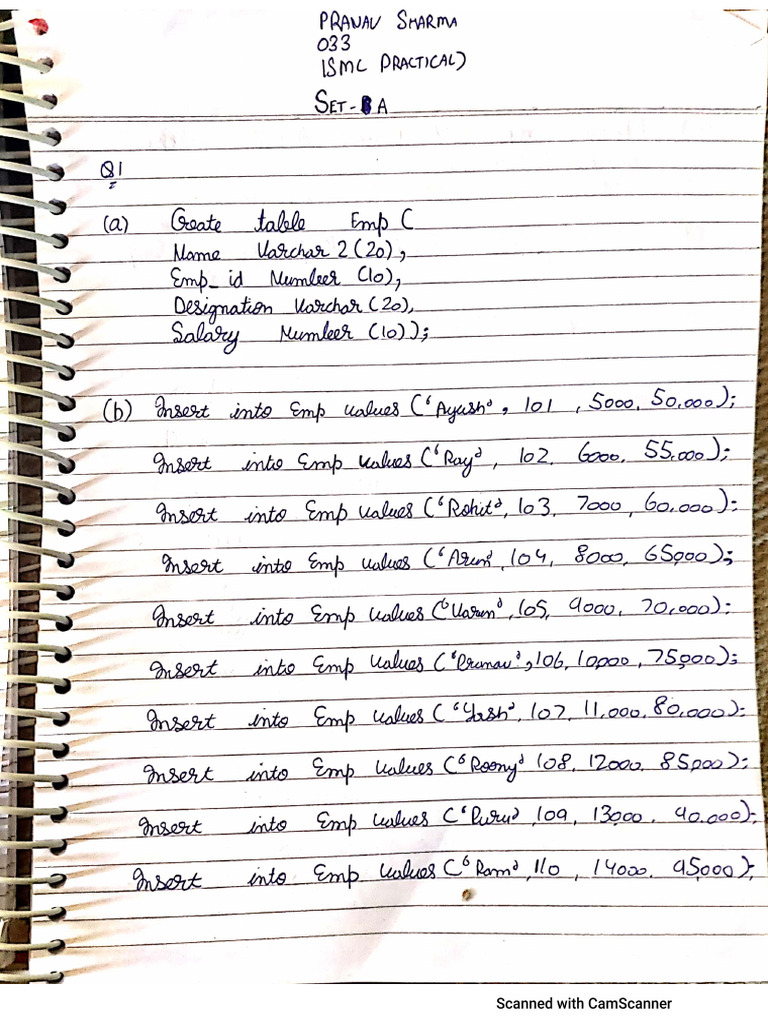 PRANAV SHARMA
033
(SMC PRACTICAL)
SET - A
Q1
(a) Create table Emp (
Name Varchar 2 (20),
Emp_id Number (10),
Designation Varchar (20),
Salary Number (10));
(b) Insert into Emp values ('Ayush', 101, 5000, 50,000);
Insert into Emp values ('Ray', 102, 6000, 55,000);
Insert into Emp values ('Rohit', 103, 7000, 60,000);
Insert into Emp values ('Arun', 104, 8000, 65,000);
Insert into Emp values ('Varun', 105, 9000, 70,000);
Insert into Emp values ('Pranav', 106, 10,000, 75,000);
Insert into Emp values ('Yash', 107, 11,000, 80,000);
Insert into Emp values ('Roony' 108, 12000, 85,000);
Insert into Emp values ('Puru', 109, 13,000, 90,000);
Insert into Emp values ('Ram', 110, 14000, 95,000);
Scanned with CamScanner